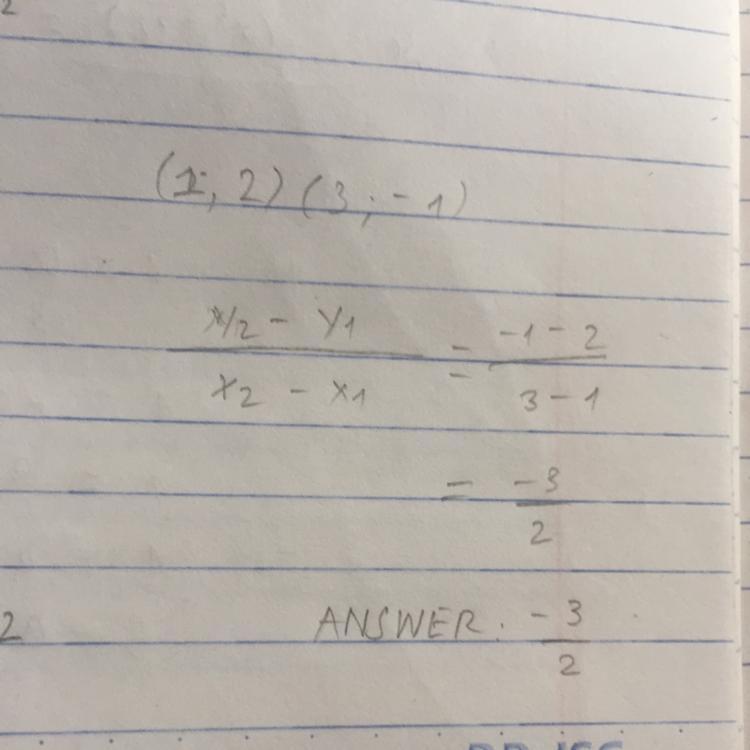 2
(1; 2) (3; -1)
y2 - y1 / x2 - x1 = -1 - 2 / 3 - 1
= -3 / 2
2 ANSWER: -3 / 2